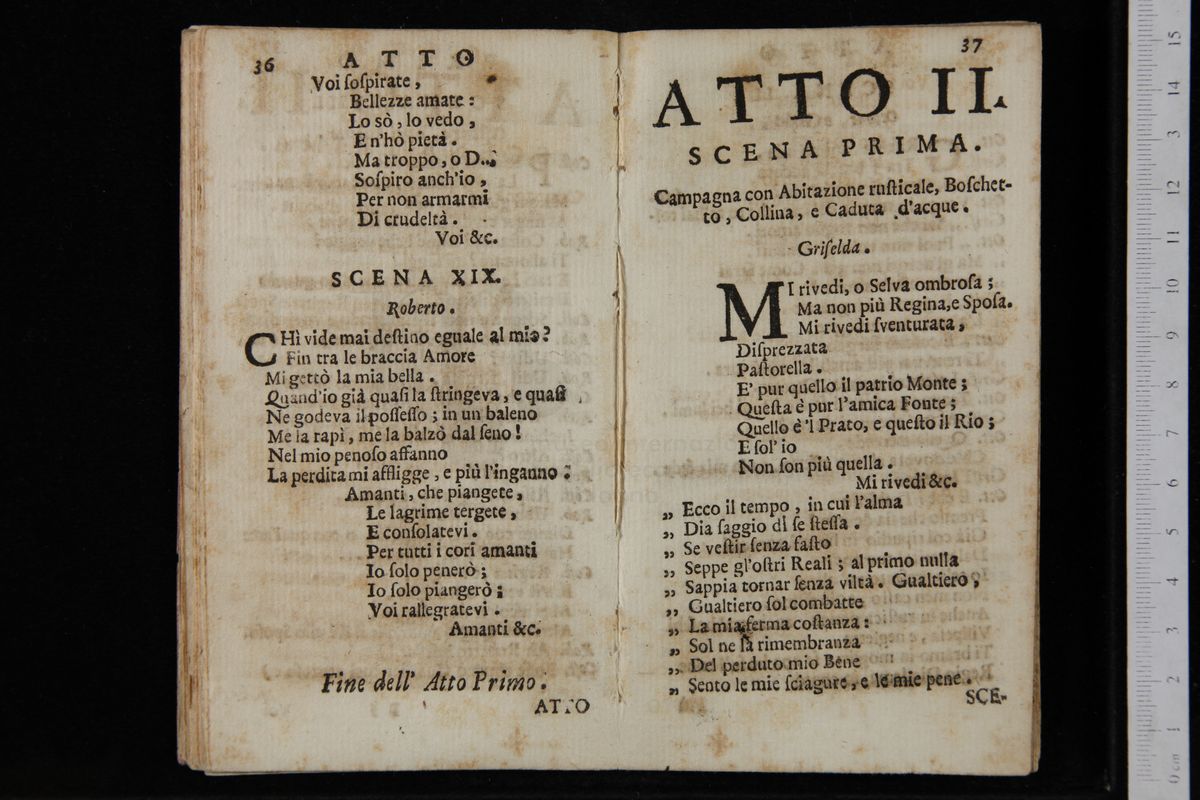 36
ATTO
Voi ſoſpirate,
Bellezze amate:
Lo sò, lo vedo,
E n'hò pietà.
Ma troppo, o D..;
Soſpiro anch'io,
Per non armarmi
Di crudeltà.
Voi &c.
SCENA XIX.
Roberto.
CHì vide mai deſtino eguale al mio?
Fin tra le braccia Amore
Mi gettò la mia bella.
Quand'io già quaſi la ſtringeva, e quaſi
Ne godeva il poſſeſſo; in un baleno
Me la rapì, me la balzò dal ſeno!
Nel mio penoſo affanno
La perdita mi affligge, e più l'inganno:
Amanti, che piangete,
Le lagrime tergete,
E conſolatevi.
Per tutti i cori amanti
Io ſolo penerò;
Io ſolo piangerò;
Voi rallegratevi.
Amanti &c.
Fine dell' Atto Primo.
ATTO
37
ATTO II.
SCENA PRIMA.
Campagna con Abitazione ruſticale, Boſchet-
to, Collina, e Caduta d'acque.
Griſelda.
MI rivedi, o Selva ombroſa;
Ma non più Regina, e Spoſa.
Mi rivedi ſventurata,
Diſprezzata
Paſtorella.
E' pur quello il patrio Monte;
Queſta è pur l'amica Fonte;
Quello è 'l Prato, e queſto il Rio;
E ſol' io
Non ſon più quella.
Mi rivedi &c.
„ Ecco il tempo, in cui l'alma
„ Dia ſaggio di ſe ſteſſa.
„ Se veſtir ſenza faſto
„ Seppe gl'oſtri Reali; al primo nulla
„ Sappia tornar ſenza viltà. Gualtiero,
„ Gualtiero ſol combatte
„ La mia ferma coſtanza:
„ Sol ne la rimembranza
„ Del perduto mio Bene
„ Sento le mie ſciagure, e le mie pene.
SCE-
0 cm 1 2 3 4 5 6 7 8 9 10 11 12 13 14 15